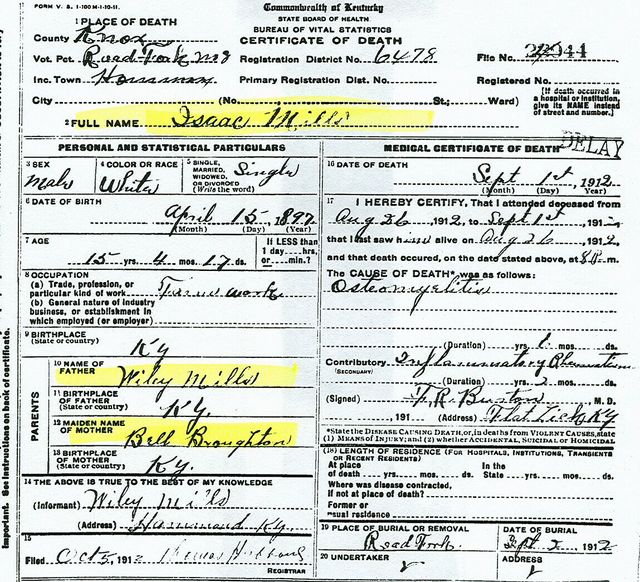 FORM V. S. 1-100M-1-10-11.
Commonwealth of Kentucky
STATE BOARD OF HEALTH
BUREAU OF VITAL STATISTICS
CERTIFICATE OF DEATH
1 PLACE OF DEATH
County Knox
Vot. Pct. Road Fork
Registration District No. 6478
File No.
Inc. Town
Primary Registration Dist. No.
Registered No.
City (No. St.; Ward)
[If death occurred in a hospital or institution, give its NAME instead of street and number.]
2 FULL NAME Isaac Mills
PERSONAL AND STATISTICAL PARTICULARS
3 SEX Male
4 COLOR OR RACE White
5 SINGLE, MARRIED, WIDOWED OR DIVORCED (Write the word) Single
6 DATE OF BIRTH
April 15 1897
(Month) (Day) (Year)
7 AGE
15 yrs. 4 mos. 17 ds.
If LESS than 1 day....hrs. or....min.?
8 OCCUPATION
(a) Trade, profession, or particular kind of work Farm work
(b) General nature of industry business, or establishment in which employed (or employer)
9 BIRTHPLACE
(State or country) Ky
PARENTS
10 NAME OF FATHER Wiley Mills
11 BIRTHPLACE OF FATHER (State or country) Ky.
12 MAIDEN NAME OF MOTHER Bell Broughton
13 BIRTHPLACE OF MOTHER (State or country) Ky.
14 THE ABOVE IS TRUE TO THE BEST OF MY KNOWLEDGE
(Informant) Wiley Mills
(Address) Hammond Ky.
15
Filed Oct 5, 1912 Thomas Hubbard
REGISTRAR
MEDICAL CERTIFICATE OF DEATH
DELAY
16 DATE OF DEATH
Sept 1st, 1912
(Month) (Day) (Year)
17 I HEREBY CERTIFY, That I attended deceased from
Aug 26, 1912, to Sept 1st, 191
that I last saw him alive on Aug 26, 1912,
and that death occured, on the date stated above, at 8 P. m.
The CAUSE OF DEATH* was as follows:
Osteomyelitis
(Duration) yrs. 1 mos. ds.
Contributory Inflammatory Rheumatism
(SECONDARY)
(Duration) yrs. 2 mos. ds.
(Signed) F. R. Burton, M. D.
, 191 (Address) Flat Lick Ky
*State the DISEASE CAUSING DEATH, or, in deaths from VIOLENT CAUSES, state (1) MEANS OF INJURY; and (2) whether ACCIDENTAL, SUICIDAL OR HOMICIDAL
(18) LENGTH OF RESIDENCE (FOR HOSPITALS, INSTITUTIONS, TRANSIENTS OR RECENT RESIDENTS)
At place of death yrs. mos. ds. In the State yrs. mos. ds.
Where was disease contracted, if not at place of death?
Former or usual residence
19 PLACE OF BURIAL OR REMOVAL
Road Fork
DATE OF BURIAL
Sept 2, 1912
20 UNDERTAKER
ADDRESS
Important. See instructions on back of certificate.